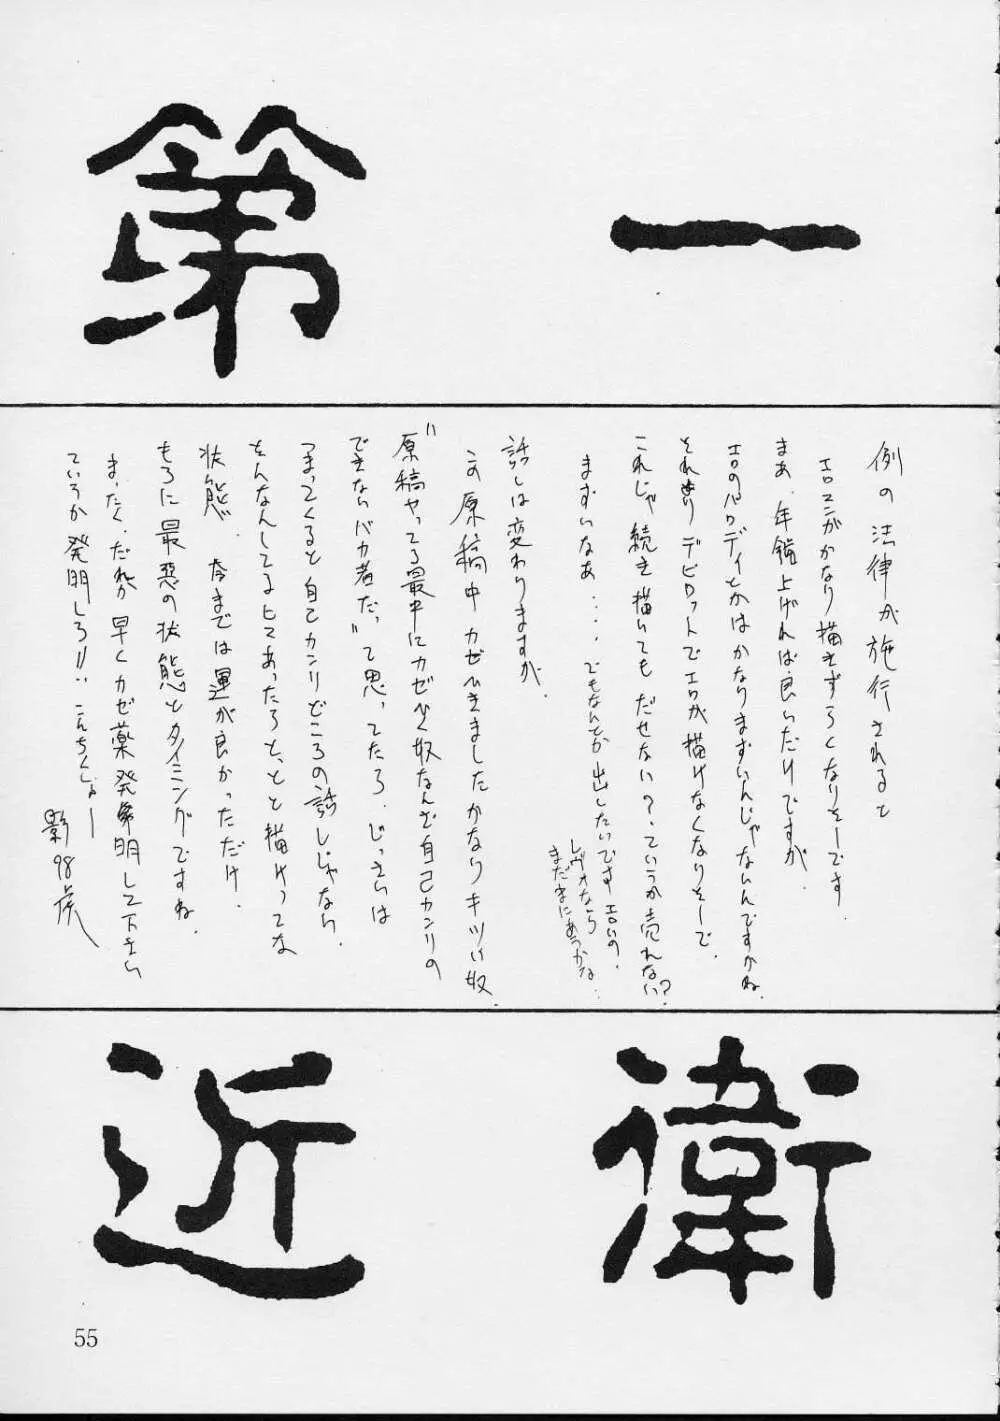 第一
例の法律が施行されると
エロマンがかなり描きずらくなりそーです
まあ、年齢上げれば良いだけですが、
エロのパロディとかはかなりまずいんじゃないんですかね、
それよりデビロットでエロが描けなくなりそーで、
これじゃ続き描いてもだせない?ていうか売れない?
まずいなぁ....でもなんとか出したいですエロいの、
レヴォなら
まだまにあうかな、
話しは変わりますが、
この原稿中カゼひきましたかなりキツい奴、
"原稿やってる最中にカゼひく奴なんぞ自己カンリの
できないバカ者だ"って思ってたら、じっさいは
つまってくると自己カンリどころの話しじゃなら、
そんなんしてるヒマあったらとっとと描けってな
状態、今までは運が良かっただけ、
もろに最悪の状態とタイミングですね、
まったく、だれか早くカゼ薬発明して下さい
ていうか発明しろ!!こんちくしょー
影98
近衛
55